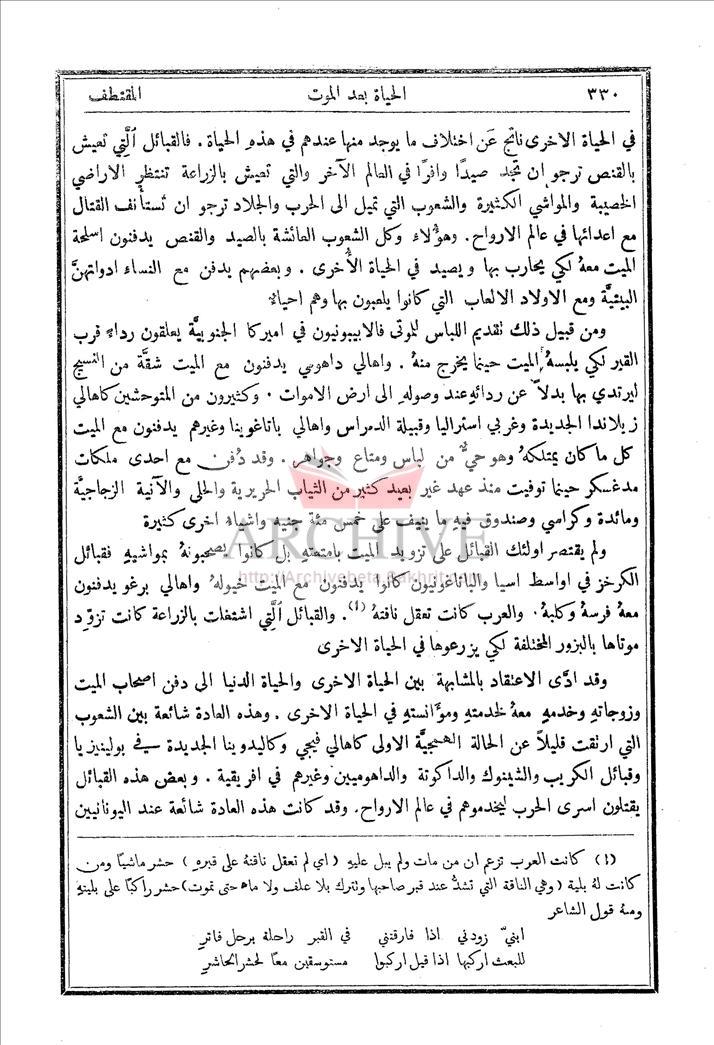 ٣٣٠ الحياة بعد الموت المقتطف
في الحياة الاخرى ناتج عن اختلاف ما يوجد منها عندهم في هذهِ الحياة . فالقبائل الَّتي تعيش
بالقنص ترجو ان تجد صيدًا وافرًا في العالم الآخر والتي تعيش بالزراعة تنتظر الاراضي
الخصيبة والمواشي الكثيرة والشعوب التي تميل الى الحرب والجلاد ترجو ان تستأنف القتال
مع اعدائها في عالم الارواح . وهوٌلاء وكل الشعوب العائشة بالصيد والقنص يدفنون اسلحة
الميت معهُ لكي يحارب بها ويصيد في الحياة الأُخرى . وبعضهم يدفن مع النساء ادواتهنَّ
البيتيَّة ومع الاولاد الالعاب التي كانوا يلعبون بها وهم احياءٌ
ومن قبيل ذلك تقديم اللباس للموتى فالابيبونيون في اميركا الجنوبيَّة يعلقون رداءً قرب
القبر لكي يلبسهُ الميت حينما يخرج منهُ . واهالي داهومي يدفنون مع الميت شقَّة من النسيج
ليرتدي بها بدلاً عن ردائهِ عند وصولهِ الى ارض الاموات . وكثيرون من المتوحشين كاهالي
زيلاندا الجديدة وغربي استراليا وقبيلة الدمراس واهالي باتاغوينا وغيرهم يدفنون مع الميت
كل ما كان يمتلكهُ وهو حيٌّ من لباس ومتاع وجواهر . وقد دُفن مع احدى ملكات
مدغسكر حينما توفيت منذ عهد غير بعيد كثير من الثياب الحريرية والحلي والآنية الزجاجيَّة
ومائدة وكراسي وصندوق فيه ما ينيف على خمس مئة جنيه واشياء اخرى كثيرة
ARCHIVE
http://Archivebeta.Sakhrit.com
ولم يقتصر اولئك القبائل على تزويد الميت بامتعتهِ بل كانوا يصحبونهُ بمواشيهِ فقبائل
الكرخز في اواسط اسيا والباتاغونيون كانوا يدفنون مع الميت خيولهُ واهالي برغو يدفنون
معهُ فرسهُ وكلبهُ . والعرب كانت تعقل ناقتهُ (١). والقبائل الَّتي اشتغلت بالزراعة كانت تزوّد
موتاها بالبزور المختلفة لكي يزرعوها في الحياة الاخرى
وقد ادَّى الاعتقاد بالمشابهة بين الحياة الاخرى والحياة الدنيا الى دفن اصحاب الميت
وزوجاتهِ وخدمهِ معهُ لخدمتهِ وموٌانستهِ في الحياة الاخرى . وهذه العادة شائعة بين الشعوب
التي ارتقت قليلاً عن الحالة الهمجيَّة الاولى كاهالي فيجي وكاليدوينا الجديدة في بولينيزيا
وقبائل الكريب والشينوك والداكوتة والداهوميين وغيرهم في افريقية . وبعض هذه القبائل
يقتلون اسرى الحرب ليخدموهم في عالم الارواح. وقد كانت هذه العادة شائعة عند اليونانيين
(١) كانت العرب تزعم ان من مات ولم يبل عليهِ ( اي لم تعقل ناقتهُ على قبرهِ ) حشر ماشيًا ومن
كانت لهُ بلية ( وهي الناقة التي تشدُّ عند قبر صاحبها وتترك بلا علف ولا ماء حتى تموت) حشر راكبًا على بليتهِ
ومنهُ قول الشاعر
ابنيّ زودني اذا فارقتني في القبر راحلة برحل فاترِ
للبعث اركبها اذا قيل اركبوا مستوسقين معًا لحشر الحاشرِ